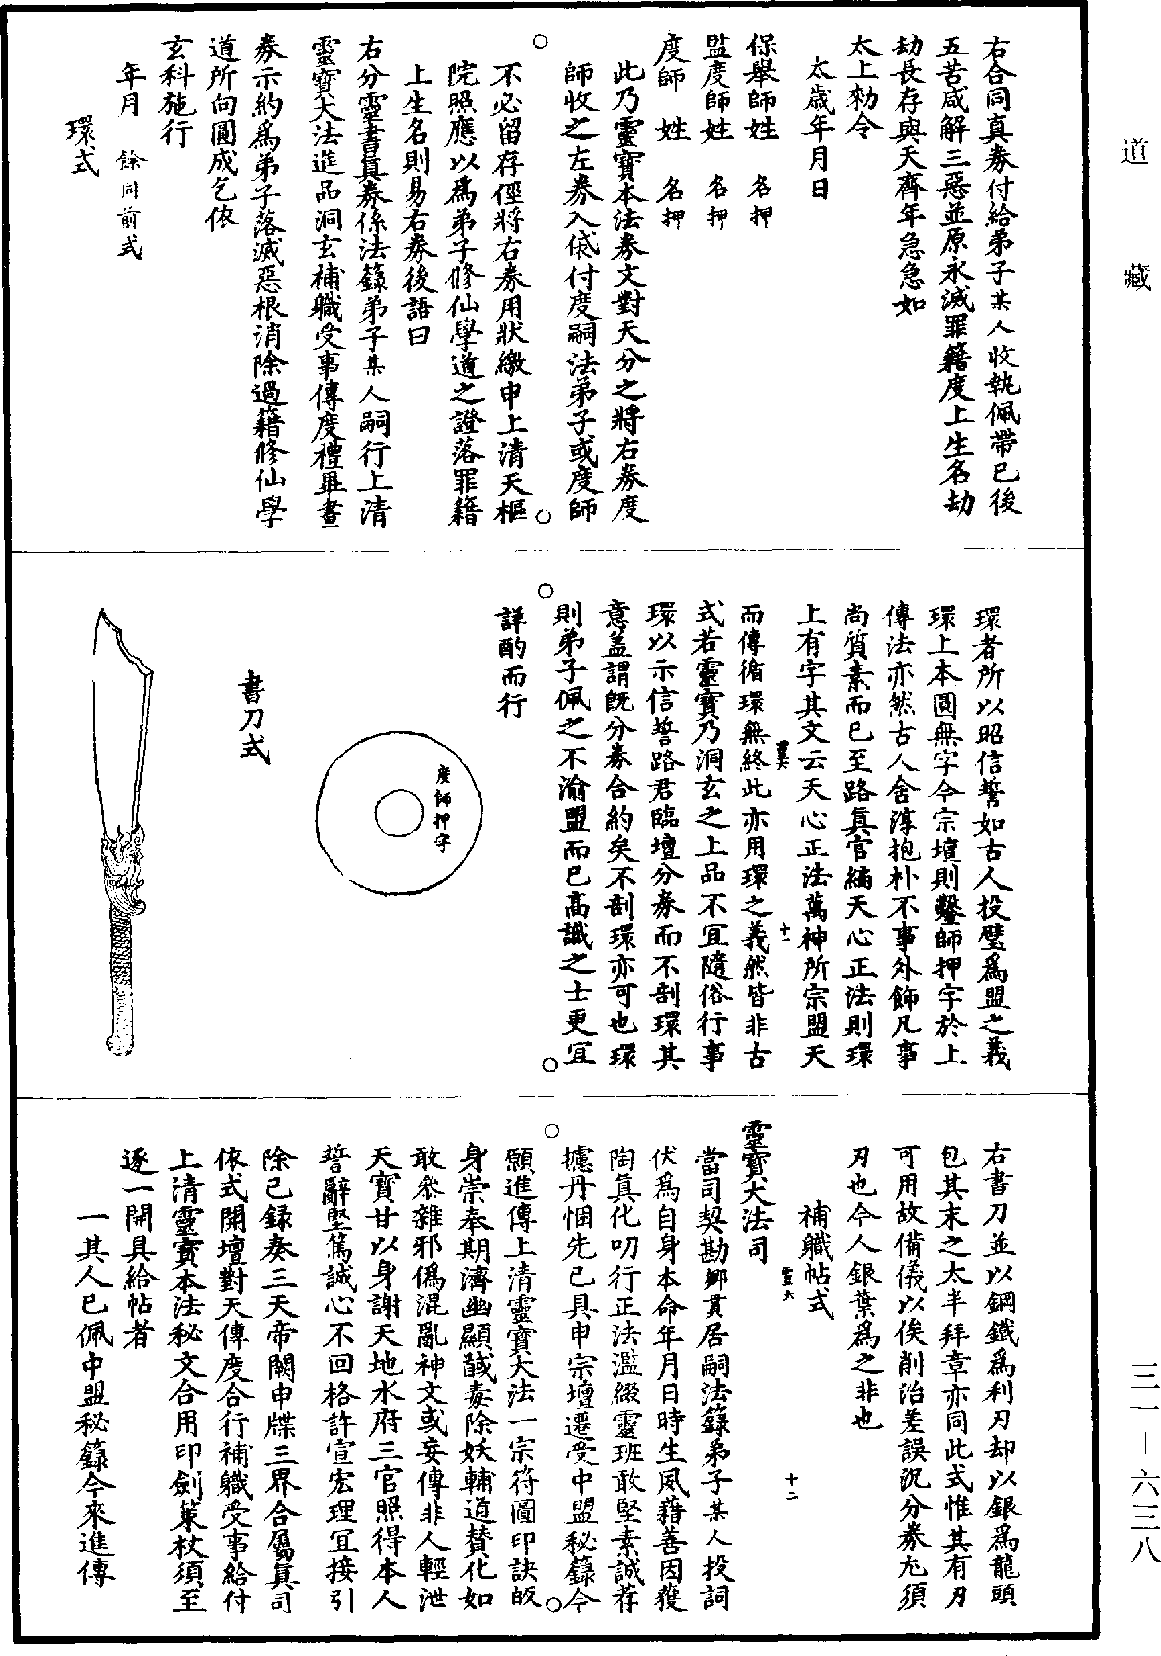 道藏
右合同真券付給弟子某人收執佩帶已後
五苦咸解三惡並原永滅罪籍度上生名劫
劫長存與天齊年急急如
太上勑令
太歲年月日
保舉師姓 名押
監度師姓 名押
度師 姓 名押
此乃靈寶本法券文對天分之將右券度
師收之左券入俵付度嗣法弟子或度師
不必留存徑將右券用狀繳申上清天樞
院照應以為弟子修仙學道之證落罪籍
上生名則易右券後語曰
右分靈書真券係法籙弟子某人嗣行上清
靈寶大法進品洞玄補職受事傳度禮畢晝
券示約為弟子落滅惡根消除過籍修仙學
道所向圓成乞依
玄科施行
年月 餘同前式
環式
環者所以昭信誓如古人投璧為盟之義
環上本圓無字今宗壇則鑿師押字於上
傳法亦然古人舍淳抱朴不事外飾凡事
尚質素而已至路真官編天心正法則環
上有字其文云天心正法萬神所宗盟天
而傳循環無終此亦用環之義然皆非古
式若靈寶乃洞玄之上品不宜隨俗行事
環以示信誓路君臨壇分券而不剖環其
意蓋謂既分券合約矣不剖環亦可也環
則弟子佩之不渝盟而已高識之士更宜
詳酌而行
十一
度師押字
書刀式
右書刀並以鋼鐵為利刃却以銀為龍頭
包其末之太半拜章亦同此式惟其有刃
可用故備儀以俟削治差誤況分券尤須
刃也今人銀葉為之非也
補職帖式
靈六
十二
靈寶大法司
當司契勘鄉貫居嗣法籙弟子某人投詞
伏為自身本命年月日時生夙藉善因獲
陶真化叨行正法濫綴靈班敢堅素誠荐
攄丹悃先已具申宗壇遷受中盟秘籙今
願進傳上清靈寶大法一宗符圖印訣皈
身崇奉期濟幽顯馘毒除妖輔道贊化如
敢叅雜邪僞混亂神文或妄傳非人輕泄
天寶甘以身謝天地水府三官照得本人
誓辭堅篤誠心不回格許宣宏理宜接引
除已録奏三天帝闕申牒三界合屬真司
依式開壇對天傳度合行補職受事給付
上清靈寶本法秘文合用印劍策杖須至
逐一開具給帖者
一其人已佩中盟秘籙今來進傳
三一－六三八